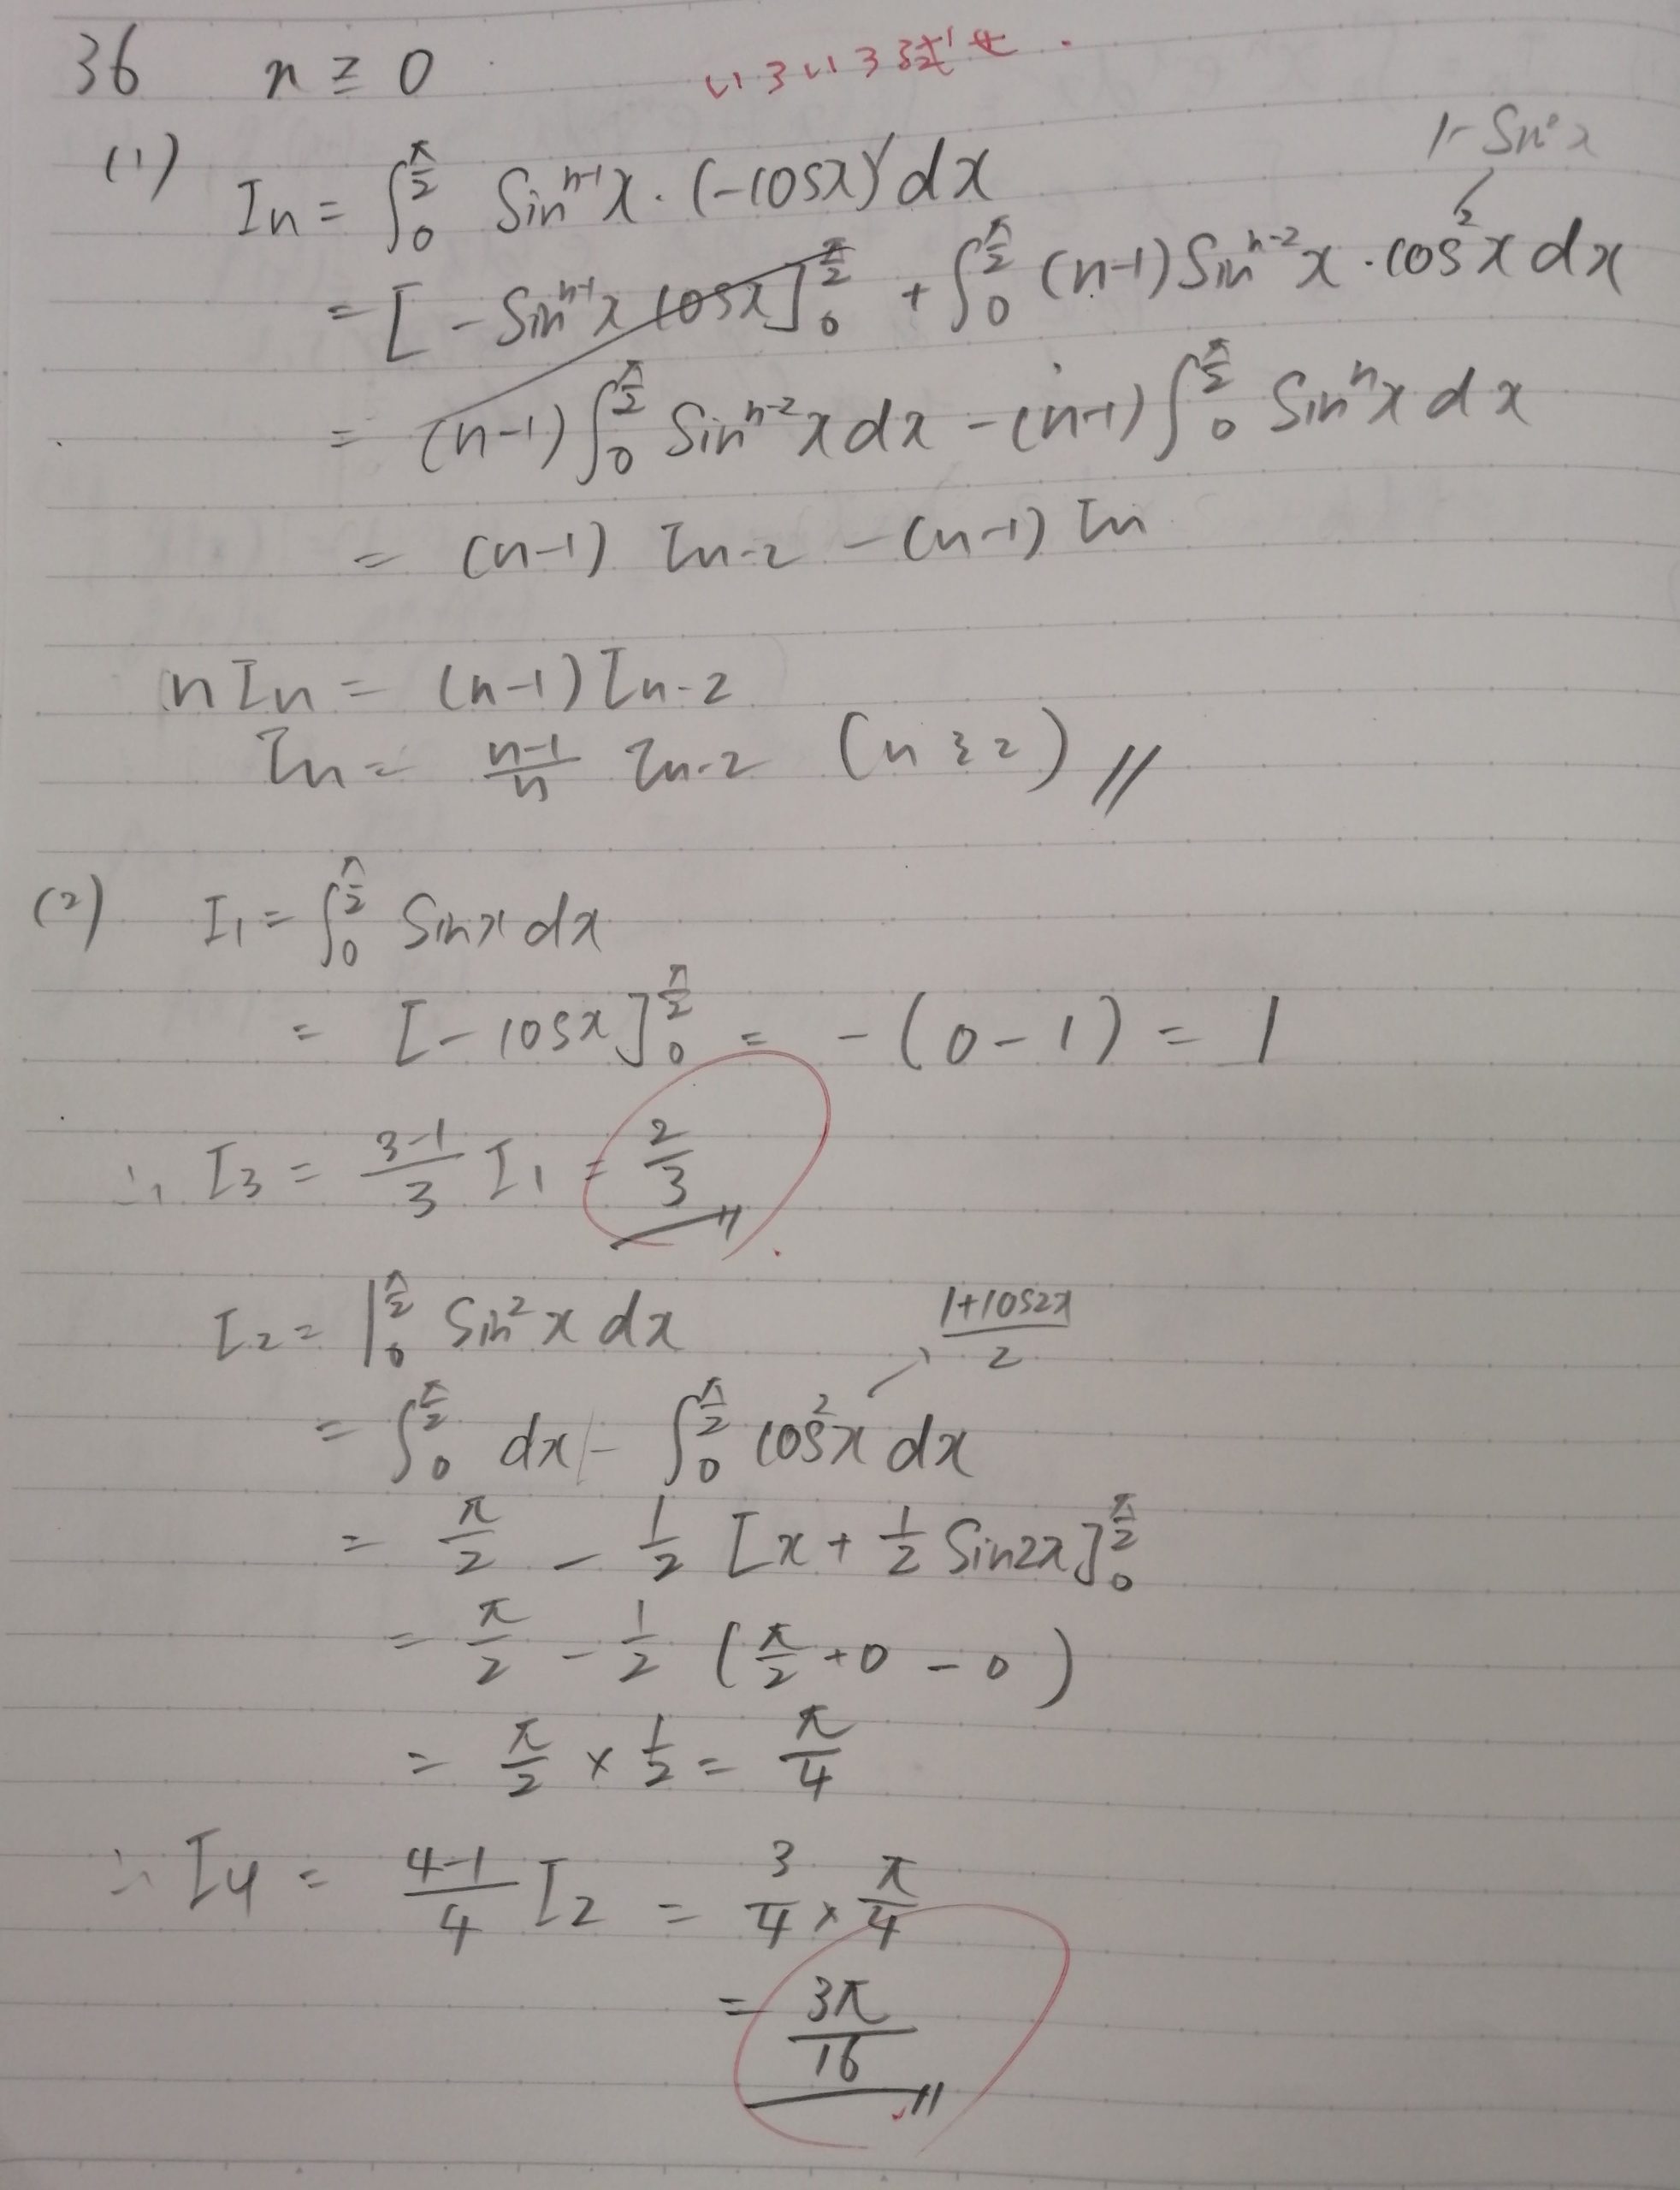 36 n ≧ 0 いろいろ試せ.
(1) 1-Sin²x
In = ∫₀^{π/2} Sin^{n-1}x・(-cosx)'dx
= [-Sin^{n-1}x cosx]₀^{π/2} + ∫₀^{π/2} (n-1)Sin^{n-2}x・cos²x dx
= (n-1)∫₀^{π/2} Sin^{n-2}x dx - (n-1)∫₀^{π/2} Sin^n x dx
= (n-1) In-2 - (n-1) In
nIn = (n-1)In-2
In = \frac{n-1}{n} In-2 (n≧2) //
(2) I₁ = ∫₀^{π/2} Sinx dx
= [-cosx]₀^{π/2} = -(0-1) = 1
∴ I₃ = \frac{3-1}{3} I₁ = \frac{2}{3} //
I₂ = ∫₀^{π/2} Sin²x dx
\frac{1+cos2x}{2}
= ∫₀^{π/2} dx - ∫₀^{π/2} cos²x dx
= \frac{π}{2} - \frac{1}{2} [x + \frac{1}{2} Sin2x]₀^{π/2}
= \frac{π}{2} - \frac{1}{2} (\frac{π}{2} + 0 - 0)
= \frac{π}{2} × \frac{1}{2} = \frac{π}{4}
∴ I₄ = \frac{4-1}{4} I₂ = \frac{3}{4} × \frac{π}{4}
= \frac{3π}{16} //